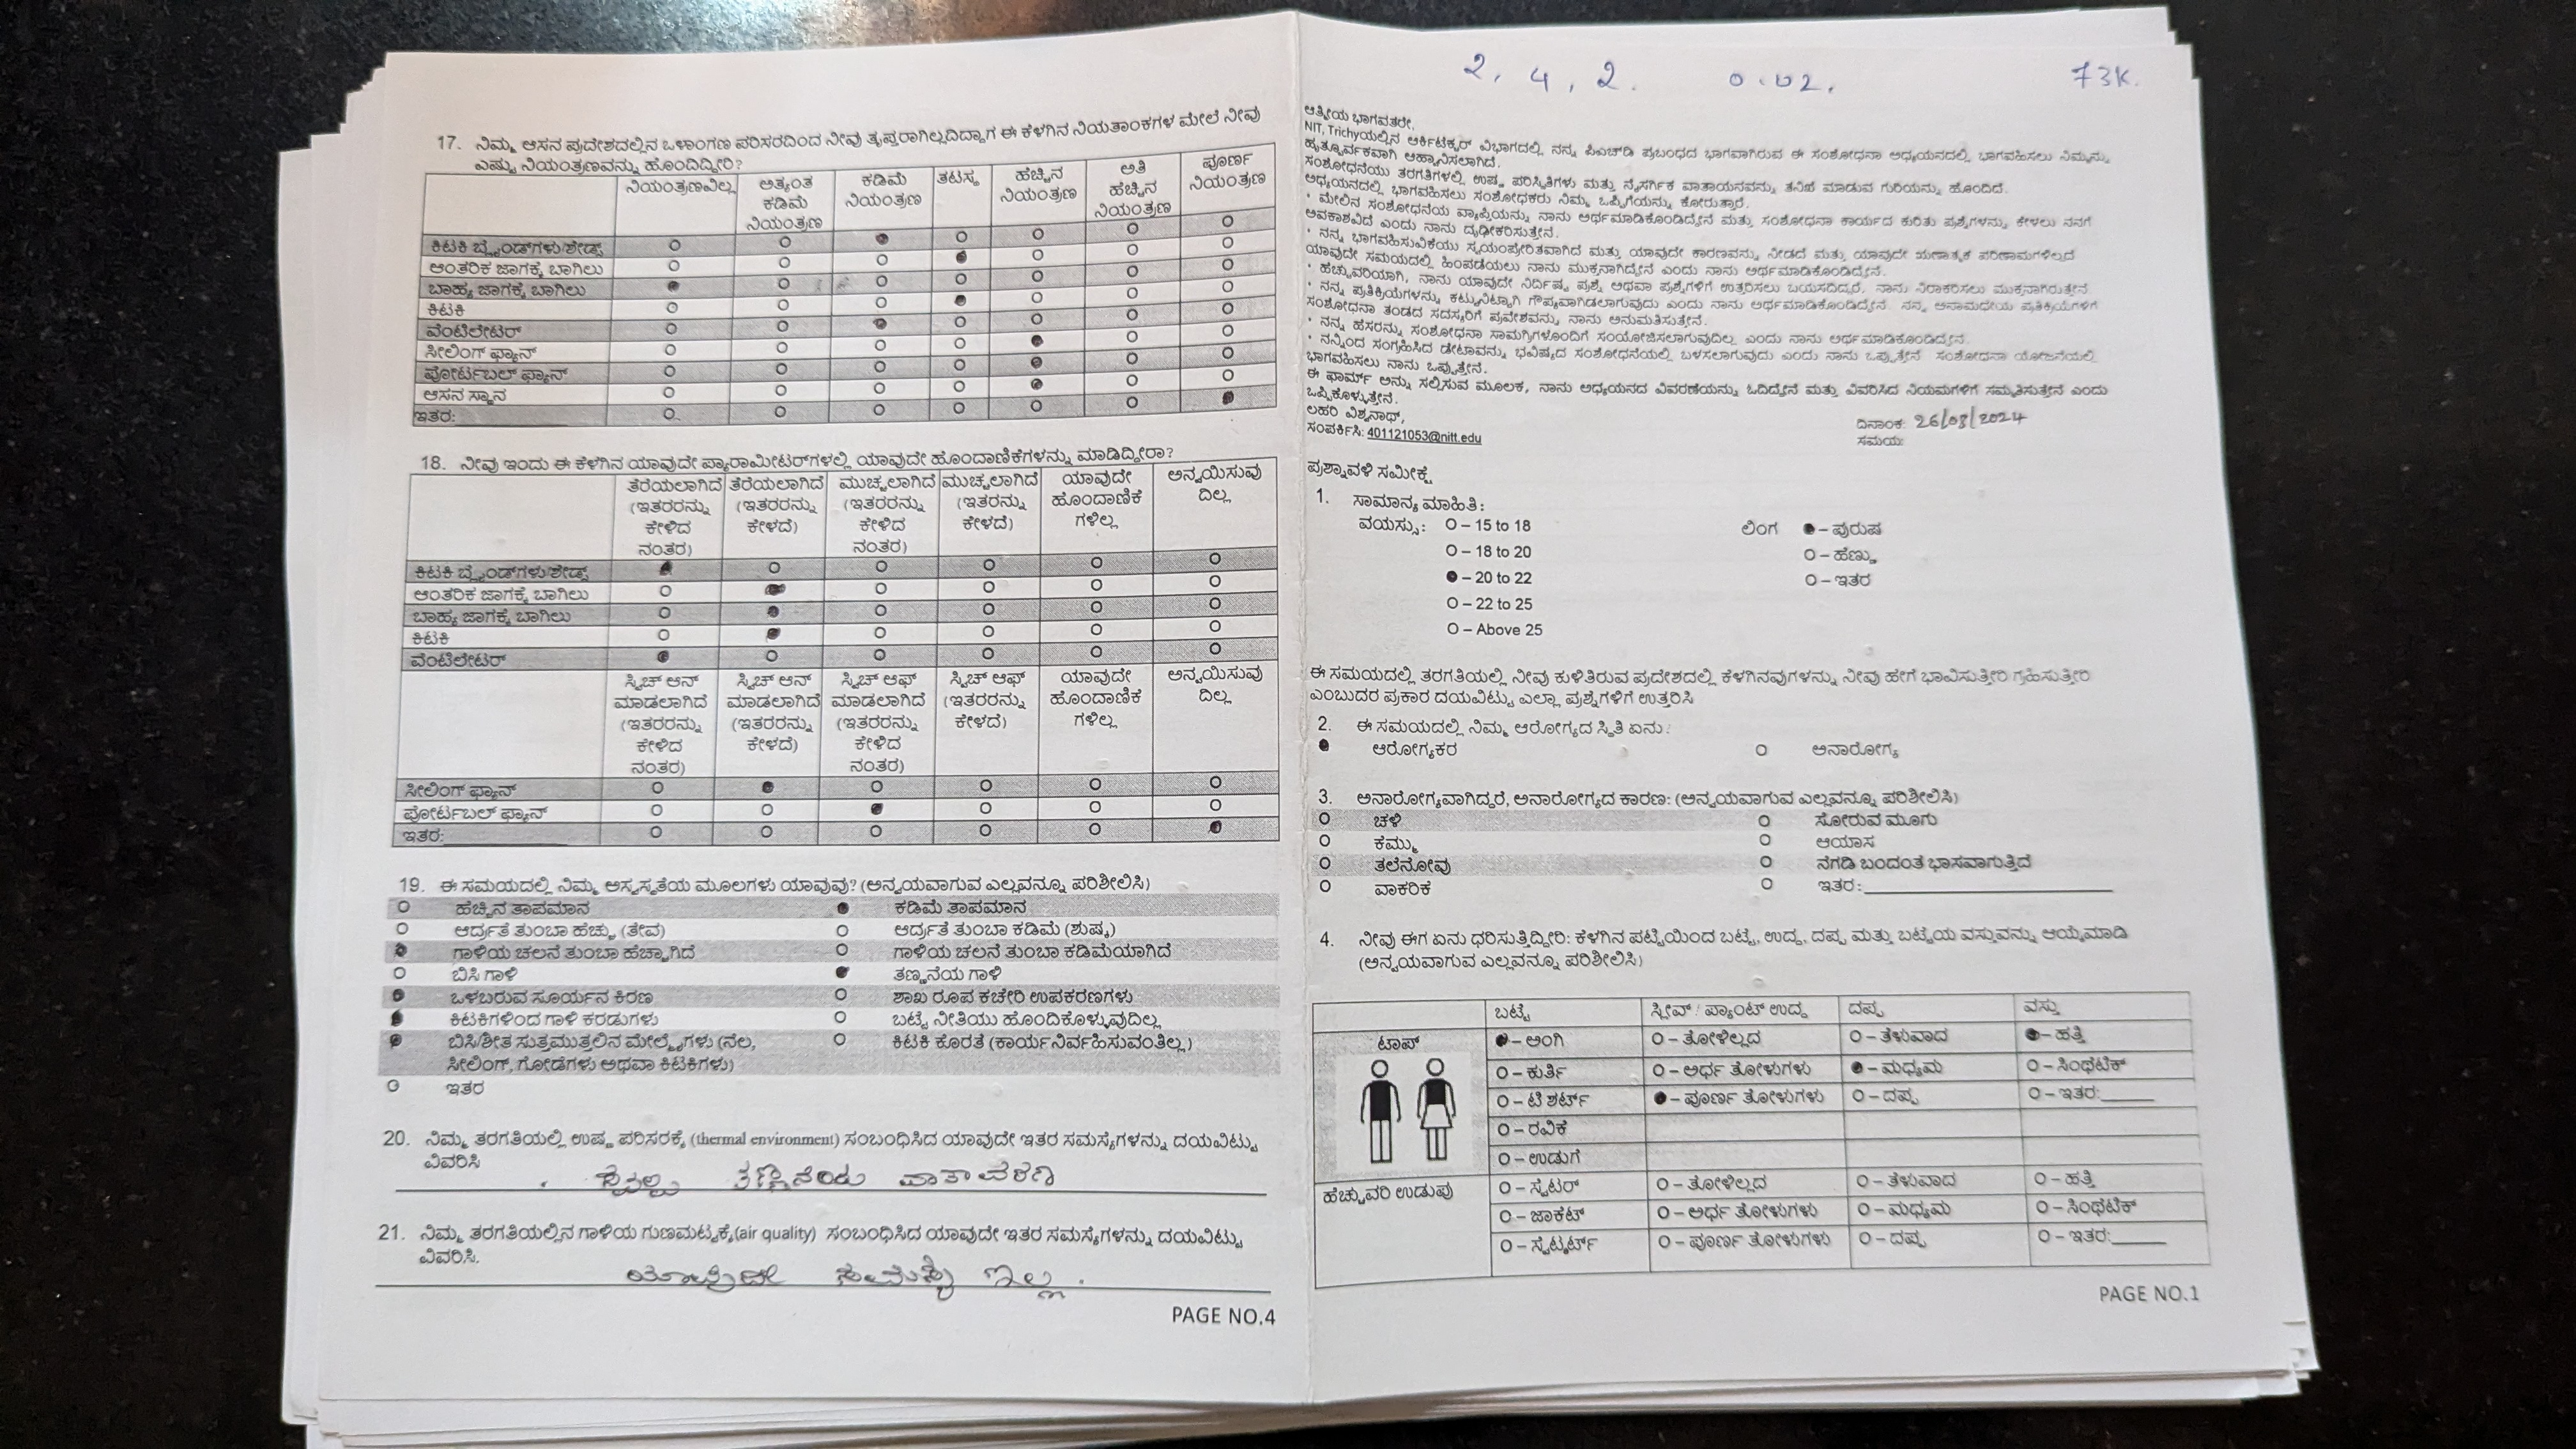 17. ನಿಮ್ಮ ಆಸನ ಪ್ರದೇಶದಲ್ಲಿನ ಒಳಾಂಗಣ ಪರಿಸರದಿಂದ ನೀವು ತೃಪ್ತರಾಗಿಲ್ಲದಿದ್ದಾಗ ಈ ಕೆಳಗಿನ ನಿಯತಾಂಕಗಳ ಮೇಲೆ ನೀವು
ಎಷ್ಟು ನಿಯಂತ್ರಣವನ್ನು ಹೊಂದಿದ್ದೀರಿ?
ನಿಯಂತ್ರಣವಿಲ್ಲ ಅತ್ಯಂತ ಕಡಿಮೆ ನಿಯಂತ್ರಣ ಕಡಿಮೆ ನಿಯಂತ್ರಣ ತಟಸ್ಥ ಹೆಚ್ಚಿನ ನಿಯಂತ್ರಣ ಅತಿ ಹೆಚ್ಚಿನ ನಿಯಂತ್ರಣ ಪೂರ್ಣ ನಿಯಂತ್ರಣ
ಕಿಟಕಿ ಬ್ಲೈಂಡ್‌ಗಳು/ಶೇಡ್ಸ್
ಆಂತರಿಕ ಜಾಗಕ್ಕೆ ಬಾಗಿಲು
ಬಾಹ್ಯ ಜಾಗಕ್ಕೆ ಬಾಗಿಲು
ಕಿಟಕಿ
ವೆಂಟಿಲೇಟರ್
ಸೀಲಿಂಗ್ ಫ್ಯಾನ್
ಪೋರ್ಟಬಲ್ ಫ್ಯಾನ್
ಆಸನ ಸ್ಥಾನ
ಇತರ:
18. ನೀವು ಇಂದು ಈ ಕೆಳಗಿನ ಯಾವುದೇ ಪ್ಯಾರಾಮೀಟರ್‌ಗಳಲ್ಲಿ ಯಾವುದೇ ಹೊಂದಾಣಿಕೆಗಳನ್ನು ಮಾಡಿದ್ದೀರಾ?
ತೆರೆಯಲಾಗಿದೆ (ಇತರರನ್ನು ಕೇಳಿದ ನಂತರ) ತೆರೆಯಲಾಗಿದೆ (ಇತರರನ್ನು ಕೇಳದೆ) ಮುಚ್ಚಲಾಗಿದೆ (ಇತರರನ್ನು ಕೇಳಿದ ನಂತರ) ಮುಚ್ಚಲಾಗಿದೆ (ಇತರರನ್ನು ಕೇಳದೆ) ಯಾವುದೇ ಹೊಂದಾಣಿಕೆ ಗಳಿಲ್ಲ ಅನ್ವಯಿಸುವು ದಿಲ್ಲ
ಕಿಟಕಿ ಬ್ಲೈಂಡ್‌ಗಳು/ಶೇಡ್ಸ್
ಆಂತರಿಕ ಜಾಗಕ್ಕೆ ಬಾಗಿಲು
ಬಾಹ್ಯ ಜಾಗಕ್ಕೆ ಬಾಗಿಲು
ಕಿಟಕಿ
ವೆಂಟಿಲೇಟರ್
ಸ್ವಿಚ್ ಆನ್ ಮಾಡಲಾಗಿದೆ (ಇತರರನ್ನು ಕೇಳಿದ ನಂತರ) ಸ್ವಿಚ್ ಆನ್ ಮಾಡಲಾಗಿದೆ (ಇತರರನ್ನು ಕೇಳದೆ) ಸ್ವಿಚ್ ಆಫ್ ಮಾಡಲಾಗಿದೆ (ಇತರರನ್ನು ಕೇಳಿದ ನಂತರ) ಸ್ವಿಚ್ ಆಫ್ (ಇತರರನ್ನು ಕೇಳದೆ) ಯಾವುದೇ ಹೊಂದಾಣಿಕೆ ಗಳಿಲ್ಲ ಅನ್ವಯಿಸುವು ದಿಲ್ಲ
ಸೀಲಿಂಗ್ ಫ್ಯಾನ್
ಪೋರ್ಟಬಲ್ ಫ್ಯಾನ್
ಇತರ:
19. ಈ ಸಮಯದಲ್ಲಿ ನಿಮ್ಮ ಅಸ್ವಸ್ಥತೆಯ ಮೂಲಗಳು ಯಾವುವು? (ಅನ್ವಯವಾಗುವ ಎಲ್ಲವನ್ನೂ ಪರಿಶೀಲಿಸಿ)
ಹೆಚ್ಚಿನ ತಾಪಮಾನ ಕಡಿಮೆ ತಾಪಮಾನ
ಆರ್ದ್ರತೆ ತುಂಬಾ ಹೆಚ್ಚು (ತೇವ) ಆರ್ದ್ರತೆ ತುಂಬಾ ಕಡಿಮೆ (ಶುಷ್ಕ)
ಗಾಳಿಯ ಚಲನೆ ತುಂಬಾ ಹೆಚ್ಚಾಗಿದೆ ಗಾಳಿಯ ಚಲನೆ ತುಂಬಾ ಕಡಿಮೆಯಾಗಿದೆ
ಬಿಸಿ ಗಾಳಿ ತಣ್ಣನೆಯ ಗಾಳಿ
ಒಳಬರುವ ಸೂರ್ಯನ ಕಿರಣ ಶಾಖ ರೂಪ ಕಚೇರಿ ಉಪಕರಣಗಳು
ಕಿಟಕಿಗಳಿಂದ ಗಾಳಿ ಕರಡುಗಳು ಬಟ್ಟೆ ನೀತಿಯು ಹೊಂದಿಕೊಳ್ಳುವುದಿಲ್ಲ
ಬಿಸಿ/ಶೀತ ಸುತ್ತಮುತ್ತಲಿನ ಮೇಲ್ಮೈಗಳು (ನೆಲ, ಕಿಟಕಿ ಕೊರತೆ (ಕಾರ್ಯನಿರ್ವಹಿಸುವಂತಿಲ್ಲ)
ಸೀಲಿಂಗ್, ಗೋಡೆಗಳು ಅಥವಾ ಕಿಟಕಿಗಳು)
ಇತರ
20. ನಿಮ್ಮ ತರಗತಿಯಲ್ಲಿ ಉಷ್ಣ ಪರಿಸರಕ್ಕೆ (thermal environment) ಸಂಬಂಧಿಸಿದ ಯಾವುದೇ ಇತರ ಸಮಸ್ಯೆಗಳನ್ನು ದಯವಿಟ್ಟು
ವಿವರಿಸಿ
ಸ್ವಲ್ಪ ವಾತಾವರಣ
21. ನಿಮ್ಮ ತರಗತಿಯಲ್ಲಿನ ಗಾಳಿಯ ಗುಣಮಟ್ಟಕ್ಕೆ(air quality) ಸಂಬಂಧಿಸಿದ ಯಾವುದೇ ಇತರ ಸಮಸ್ಯೆಗಳನ್ನು ದಯವಿಟ್ಟು
ವಿವರಿಸಿ.
ಯಾವುದೇ ಸಮಸ್ಯೆ ಇಲ್ಲ.
PAGE NO.4
2, 4, 2. 0.02. 73K.
ಆತ್ಮೀಯ ಭಾಗವತರೇ,
NIT, Trichyಯಲ್ಲಿನ ಆರ್ಕಿಟೆಕ್ಚರ್ ವಿಭಾಗದಲ್ಲಿ ನನ್ನ ಪಿಎಚ್‌ಡಿ ಪ್ರಬಂಧದ ಭಾಗವಾಗಿರುವ ಈ ಸಂಶೋಧನಾ ಅಧ್ಯಯನದಲ್ಲಿ ಭಾಗವಹಿಸಲು ನಿಮ್ಮನ್ನು
ಹೃತ್ಪೂರ್ವಕವಾಗಿ ಆಹ್ವಾನಿಸಲಾಗಿದೆ.
ಸಂಶೋಧನೆಯು ತರಗತಿಗಳಲ್ಲಿ ಉಷ್ಣ ಪರಿಸ್ಥಿತಿಗಳು ಮತ್ತು ನೈಸರ್ಗಿಕ ವಾತಾಯನವನ್ನು ತನಿಖೆ ಮಾಡುವ ಗುರಿಯನ್ನು ಹೊಂದಿದೆ.
ಅಧ್ಯಯನದಲ್ಲಿ ಭಾಗವಹಿಸಲು ಸಂಶೋಧಕರು ನಿಮ್ಮ ಒಪ್ಪಿಗೆಯನ್ನು ಕೋರುತ್ತಾರೆ.
• ಮೇಲಿನ ಸಂಶೋಧನೆಯ ವ್ಯಾಪ್ತಿಯನ್ನು ನಾನು ಅರ್ಥಮಾಡಿಕೊಂಡಿದ್ದೇನೆ ಮತ್ತು ಸಂಶೋಧನಾ ಕಾರ್ಯದ ಕುರಿತು ಪ್ರಶ್ನೆಗಳನ್ನು ಕೇಳಲು ನನಗೆ
ಅವಕಾಶವಿದೆ ಎಂದು ನಾನು ದೃಢೀಕರಿಸುತ್ತೇನೆ.
• ನನ್ನ ಭಾಗವಹಿಸುವಿಕೆಯು ಸ್ವಯಂಪ್ರೇರಿತವಾಗಿದೆ ಮತ್ತು ಯಾವುದೇ ಕಾರಣವನ್ನು ನೀಡದೆ ಮತ್ತು ಯಾವುದೇ ಋಣಾತ್ಮಕ ಪರಿಣಾಮಗಳಿಲ್ಲದೆ
ಯಾವುದೇ ಸಮಯದಲ್ಲಿ ಹಿಂಪಡೆಯಲು ನಾನು ಮುಕ್ತನಾಗಿದ್ದೇನೆ ಎಂದು ನಾನು ಅರ್ಥಮಾಡಿಕೊಂಡಿದ್ದೇನೆ.
• ಹೆಚ್ಚುವರಿಯಾಗಿ, ನಾನು ಯಾವುದೇ ನಿರ್ದಿಷ್ಟ ಪ್ರಶ್ನೆ ಅಥವಾ ಪ್ರಶ್ನೆಗಳಿಗೆ ಉತ್ತರಿಸಲು ಬಯಸದಿದ್ದರೆ, ನಾನು ನಿರಾಕರಿಸಲು ಮುಕ್ತನಾಗಿರುತ್ತೇನೆ
• ನನ್ನ ಪ್ರತಿಕ್ರಿಯೆಗಳನ್ನು ಕಟ್ಟುನಿಟ್ಟಾಗಿ ಗೌಪ್ಯವಾಗಿಡಲಾಗುವುದು ಎಂದು ನಾನು ಅರ್ಥಮಾಡಿಕೊಂಡಿದ್ದೇನೆ. ನನ್ನ ಅನಾಮಧೇಯ ಪ್ರತಿಕ್ರಿಯೆಗಳಿಗೆ
ಸಂಶೋಧನಾ ತಂಡದ ಸದಸ್ಯರಿಗೆ ಪ್ರವೇಶವನ್ನು ನಾನು ಅನುಮತಿಸುತ್ತೇನೆ.
• ನನ್ನ ಹೆಸರನ್ನು ಸಂಶೋಧನಾ ಸಾಮಗ್ರಿಗಳೊಂದಿಗೆ ಸಂಯೋಜಿಸಲಾಗುವುದಿಲ್ಲ ಎಂದು ನಾನು ಅರ್ಥಮಾಡಿಕೊಂಡಿದ್ದೇನೆ.
• ನನ್ನಿಂದ ಸಂಗ್ರಹಿಸಿದ ಡೇಟಾವನ್ನು ಭವಿಷ್ಯದ ಸಂಶೋಧನೆಯಲ್ಲಿ ಬಳಸಲಾಗುವುದು ಎಂದು ನಾನು ಒಪ್ಪುತ್ತೇನೆ ಸಂಶೋಧನಾ ಯೋಜನೆಯಲ್ಲಿ
ಭಾಗವಹಿಸಲು ನಾನು ಒಪ್ಪುತ್ತೇನೆ.
ಈ ಫಾರ್ಮ್ ಅನ್ನು ಸಲ್ಲಿಸುವ ಮೂಲಕ, ನಾನು ಅಧ್ಯಯನದ ವಿವರಣೆಯನ್ನು ಓದಿದ್ದೇನೆ ಮತ್ತು ವಿವರಿಸಿದ ನಿಯಮಗಳಿಗೆ ಸಮ್ಮತಿಸುತ್ತೇನೆ ಎಂದು
ಒಪ್ಪಿಕೊಳ್ಳುತ್ತೇನೆ.
ಲಹರಿ ವಿಶ್ವನಾಥ್,
ಸಂಪರ್ಕಿಸಿ: 401121053@nitt.edu
ದಿನಾಂಕ: 26/03/2024
ಸಮಯ:
ಪ್ರಶ್ನಾವಳಿ ಸಮೀಕ್ಷೆ
1. ಸಾಮಾನ್ಯ ಮಾಹಿತಿ:
ವಯಸ್ಸು: O – 15 to 18 ಲಿಂಗ – ಪುರುಷ
O – 18 to 20 O – ಹೆಣ್ಣು
– 20 to 22 O – ಇತರ
O – 22 to 25
O – Above 25
ಈ ಸಮಯದಲ್ಲಿ ತರಗತಿಯಲ್ಲಿ ನೀವು ಕುಳಿತಿರುವ ಪ್ರದೇಶದಲ್ಲಿ ಕೆಳಗಿನವುಗಳನ್ನು ನೀವು ಹೇಗೆ ಭಾವಿಸುತ್ತೀರಿ ಗ್ರಹಿಸುತ್ತೀರಿ
ಎಂಬುದರ ಪ್ರಕಾರ ದಯವಿಟ್ಟು ಎಲ್ಲಾ ಪ್ರಶ್ನೆಗಳಿಗೆ ಉತ್ತರಿಸಿ
2. ಈ ಸಮಯದಲ್ಲಿ ನಿಮ್ಮ ಆರೋಗ್ಯದ ಸ್ಥಿತಿ ಏನು?
ಆರೋಗ್ಯಕರ ಅನಾರೋಗ್ಯ
3. ಅನಾರೋಗ್ಯವಾಗಿದ್ದರೆ, ಅನಾರೋಗ್ಯದ ಕಾರಣ: (ಅನ್ವಯವಾಗುವ ಎಲ್ಲವನ್ನೂ ಪರಿಶೀಲಿಸಿ)
ಚಳಿ ಸೋರುವ ಮೂಗು
ಕೆಮ್ಮು ಆಯಾಸ
ತಲೆನೋವು ನೆಗಡಿ ಬಂದಂತೆ ಭಾಸವಾಗುತ್ತಿದೆ
ವಾಕರಿಕೆ ಇತರ:
4. ನೀವು ಈಗ ಏನು ಧರಿಸುತ್ತಿದ್ದೀರಿ: ಕೆಳಗಿನ ಪಟ್ಟಿಯಿಂದ ಬಟ್ಟೆ, ಉದ್ದ, ದಪ್ಪ ಮತ್ತು ಬಟ್ಟೆಯ ವಸ್ತುವನ್ನು ಆಯ್ಕೆಮಾಡಿ
(ಅನ್ವಯವಾಗುವ ಎಲ್ಲವನ್ನೂ ಪರಿಶೀಲಿಸಿ)
ಬಟ್ಟೆ ಸ್ಲೀವ್ / ಪ್ಯಾಂಟ್ ಉದ್ದ ದಪ್ಪ ವಸ್ತು
ಟಾಪ್ – ಅಂಗಿ O – ತೋಳಿಲ್ಲದ O – ತೆಳುವಾದ – ಹತ್ತಿ
O – ಕುರ್ತಿ O – ಅರ್ಧ ತೋಳುಗಳು – ಮಧ್ಯಮ O – ಸಿಂಥೆಟಿಕ್
O – ಟಿ ಶರ್ಟ್ – ಪೂರ್ಣ ತೋಳುಗಳು O – ದಪ್ಪ O – ಇತರ:
O – ರವಿಕೆ
O – ಉಡುಗೆ
ಹೆಚ್ಚುವರಿ ಉಡುಪು O – ಸ್ವೆಟರ್ O – ತೋಳಿಲ್ಲದ O – ತೆಳುವಾದ O – ಹತ್ತಿ
O – ಜಾಕೆಟ್ O – ಅರ್ಧ ತೋಳುಗಳು O – ಮಧ್ಯಮ O – ಸಿಂಥೆಟಿಕ್
O – ಸ್ವೆಟ್ಶರ್ಟ್ O – ಪೂರ್ಣ ತೋಳುಗಳು O – ದಪ್ಪ O – ಇತರ:
PAGE NO.1